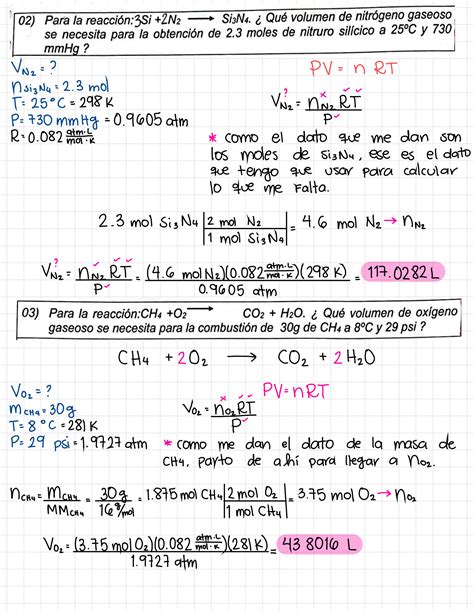 02) Para la reacción:3Si +2N2 ⟶ Si3N4. ¿ Qué volumen de nitrógeno gaseoso
se necesita para la obtención de 2.3 moles de nitruro silícico a 25ºC y 730
mmHg ?
VN2 = ?
PV = n RT
nSi3N4 = 2.3 mol
T = 25°C = 298 K
P = 730 mmHg = 0.9605 atm
R = 0.082 atm·L/mol·K
? x ✓✓
VN2 = nN2 RT / P ✓
* como el dato que me dan son
los moles de Si3N4, ese es el dato
que tengo que usar para calcular
lo que me falta.
2.3 mol Si3N4 | 2 mol N2 / 1 mol Si3N4 | = 4.6 mol N2 → nN2
? ✓ ✓✓
VN2 = nN2 RT / P ✓ = (4.6 mol N2)(0.082 atm·L/mol·K)(298 K) / 0.9605 atm = 117.0282 L
03) Para la reacción:CH4 +O2 ⟶ CO2 + H2O. ¿ Qué volumen de oxígeno
gaseoso se necesita para la combustión de 30g de CH4 a 8ºC y 29 psi ?
CH4 + 2O2 ⟶ CO2 + 2H2O
VO2 = ?
PV=nRT
mCH4 = 30g
T = 8°C = 281 K
P = 29 psi = 1.9727 atm
x ✓✓
VO2 = nO2 RT / P ✓
* como me dan el dato de la masa de
CH4, parto de ahí para llegar a nO2.
nCH4 = mCH4 / MMCH4 = 30g / 16 g/mol = 1.875 mol CH4 | 2 mol O2 / 1 mol CH4 | = 3.75 mol O2 → nO2
VO2 = (3.75 mol O2)(0.082 atm·L/mol·K)(281 K) / 1.9727 atm = 43 8016 L